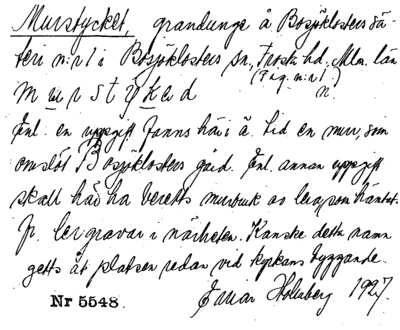 Murstycket, grandunge å Bosjöklosters sä-
teri n:r 1 i Bosjöklosters sn, Frosta hd, Mlm. län
(Täg. n:r 1)
m u r s t y k e d n.
Enl. en uppgift fanns här i ä. tid en mur, som
omslöt Bosjöklosters gård. Enl. annan uppgift
skall här ha beretts murbruk av lera, som hämtats
fr. lergravar i närheten. Kanske detta namn
getts åt platsen redan vid kyrkans byggande.
Nr 5548. Einar Holmberg 1927.